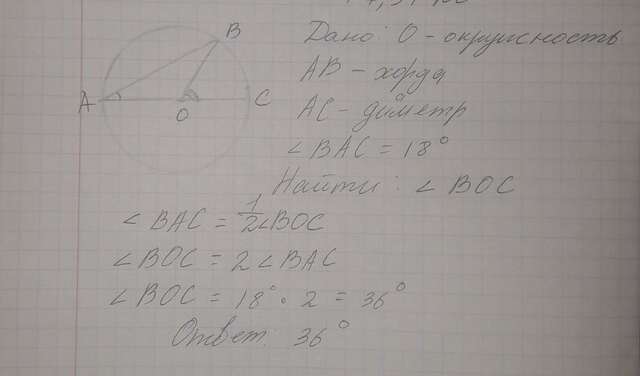 B
A
O
C
Дано: O - окружность
AB - хорда
AC - диаметр
∠BAC = 18°
Найти: ∠BOC
∠BAC = 1/2∠BOC
∠BOC = 2∠BAC
∠BOC = 18° · 2 = 36°
Ответ: 36°